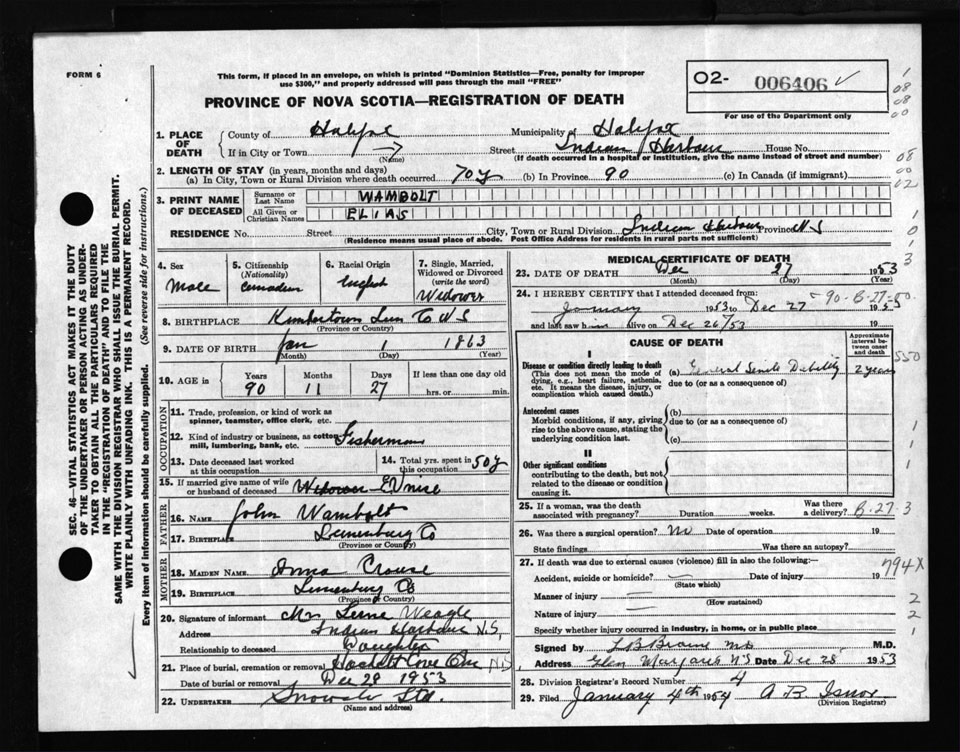 FORM 6
This form, if placed in an envelope, on which is printed "Dominion Statistics—Free, penalty for improper
use $300," and properly addressed will pass through the mail "FREE"
O2- 006406
For use of the Department only
PROVINCE OF NOVA SCOTIA—REGISTRATION OF DEATH
1. PLACE OF DEATH
County of Halifax Municipality of Halifax
If in City or Town (Name) Street Indian Harbour House No.
(If death occurred in a hospital or institution, give the name instead of street and number)
2. LENGTH OF STAY (in years, months and days)
(a) In City, Town or Rural Division where death occurred 70 y (b) In Province 90 (c) In Canada (if immigrant)
3. PRINT NAME OF DECEASED
Surname or Last Name WAMBOLT
All Given or Christian Names ELIAS
RESIDENCE No. Street City, Town or Rural Division Indian Harbour Province N S
(Residence means usual place of abode. Post Office Address for residents in rural parts not sufficient)
4. Sex Male
5. Citizenship (Nationality) Canadian
6. Racial Origin English
7. Single, Married, Widowed or Divorced (write the word) Widower
8. BIRTHPLACE Lun Co N S
(Province or Country)
9. DATE OF BIRTH Jan 1 1863
(Month) (Day) (Year)
10. AGE in Years 90 Months 11 Days 27 If less than one day old hrs. or min.
OCCUPATION
11. Trade, profession or kind of work as spinner, teamster, office clerk, etc.
12. Kind of industry or business, as cotton mill, lumbering, bank, etc. Fisherman
13. Date deceased last worked at this occupation
14. Total yrs. spent in this occupation 50 y
15. If married give name of wife or husband of deceased Widower
FATHER
16. NAME John Wambolt
17. BIRTHPLACE Lunenburg Co
(Province or Country)
MOTHER
18. MAIDEN NAME Anna Crouse
19. BIRTHPLACE Lunenburg Co
(Province or Country)
20. Signature of informant Weagle
Address Indian Harbour N.S.
Relationship to deceased Daughter
21. Place of burial, cremation or removal Hackett Cove N.S.
Date of burial or removal Dec 28 1953
22. UNDERTAKER Snows Ltd.
(Name and address)
MEDICAL CERTIFICATE OF DEATH
23. DATE OF DEATH Dec 27 1953
(Month) (Day)
24. I HEREBY CERTIFY that I attended deceased from:
January 1953 to Dec 27 1953
and last saw h alive on Dec 26/53 19
CAUSE OF DEATH
Approximate interval between onset and death
I
Disease or condition directly leading to death
(This does not mean the mode of dying, e.g., heart failure, asthenia, etc. It means the disease, injury, or complication which caused death.)
(a) General Senile Debility 2 years
due to (or as a consequence of)
Antecedent causes
Morbid conditions, if any, giving rise to the above cause, stating the underlying condition last.
(b)
due to (or as a consequence of)
(c)
II
Other significant conditions
contributing to the death, but not related to the disease or condition causing it.
25. If a woman, was the death associated with pregnancy? Duration weeks. Was there a delivery?
26. Was there a surgical operation? No Date of operation 19
State findings Was there an autopsy?
27. If death was due to external causes (violence) fill in also the following:—
Accident, suicide or homicide? Date of injury 19
(State which)
Manner of injury
(How sustained)
Nature of injury
Specify whether injury occurred in industry, in home, or in public place
794X
Signed by M.D.
Address Glen Margaret N S Date Dec 28 1953
28. Division Registrar's Record Number 4
29. Filed January 4th 1954 A B Isnor
(Division Registrar)
SEC. 46—VITAL STATISTICS ACT MAKES IT THE DUTY
OF THE UNDERTAKER OR PERSON ACTING AS UNDER-
TAKER TO OBTAIN ALL THE PARTICULARS REQUIRED
IN THE "REGISTRATION OF DEATH" AND TO FILE THE
SAME WITH THE DIVISION REGISTRAR WHO SHALL ISSUE THE BURIAL PERMIT.
WRITE PLAINLY WITH UNFADING INK. THIS IS A PERMANENT RECORD.
Every item of information should be carefully supplied. (See reverse side for instructions.)